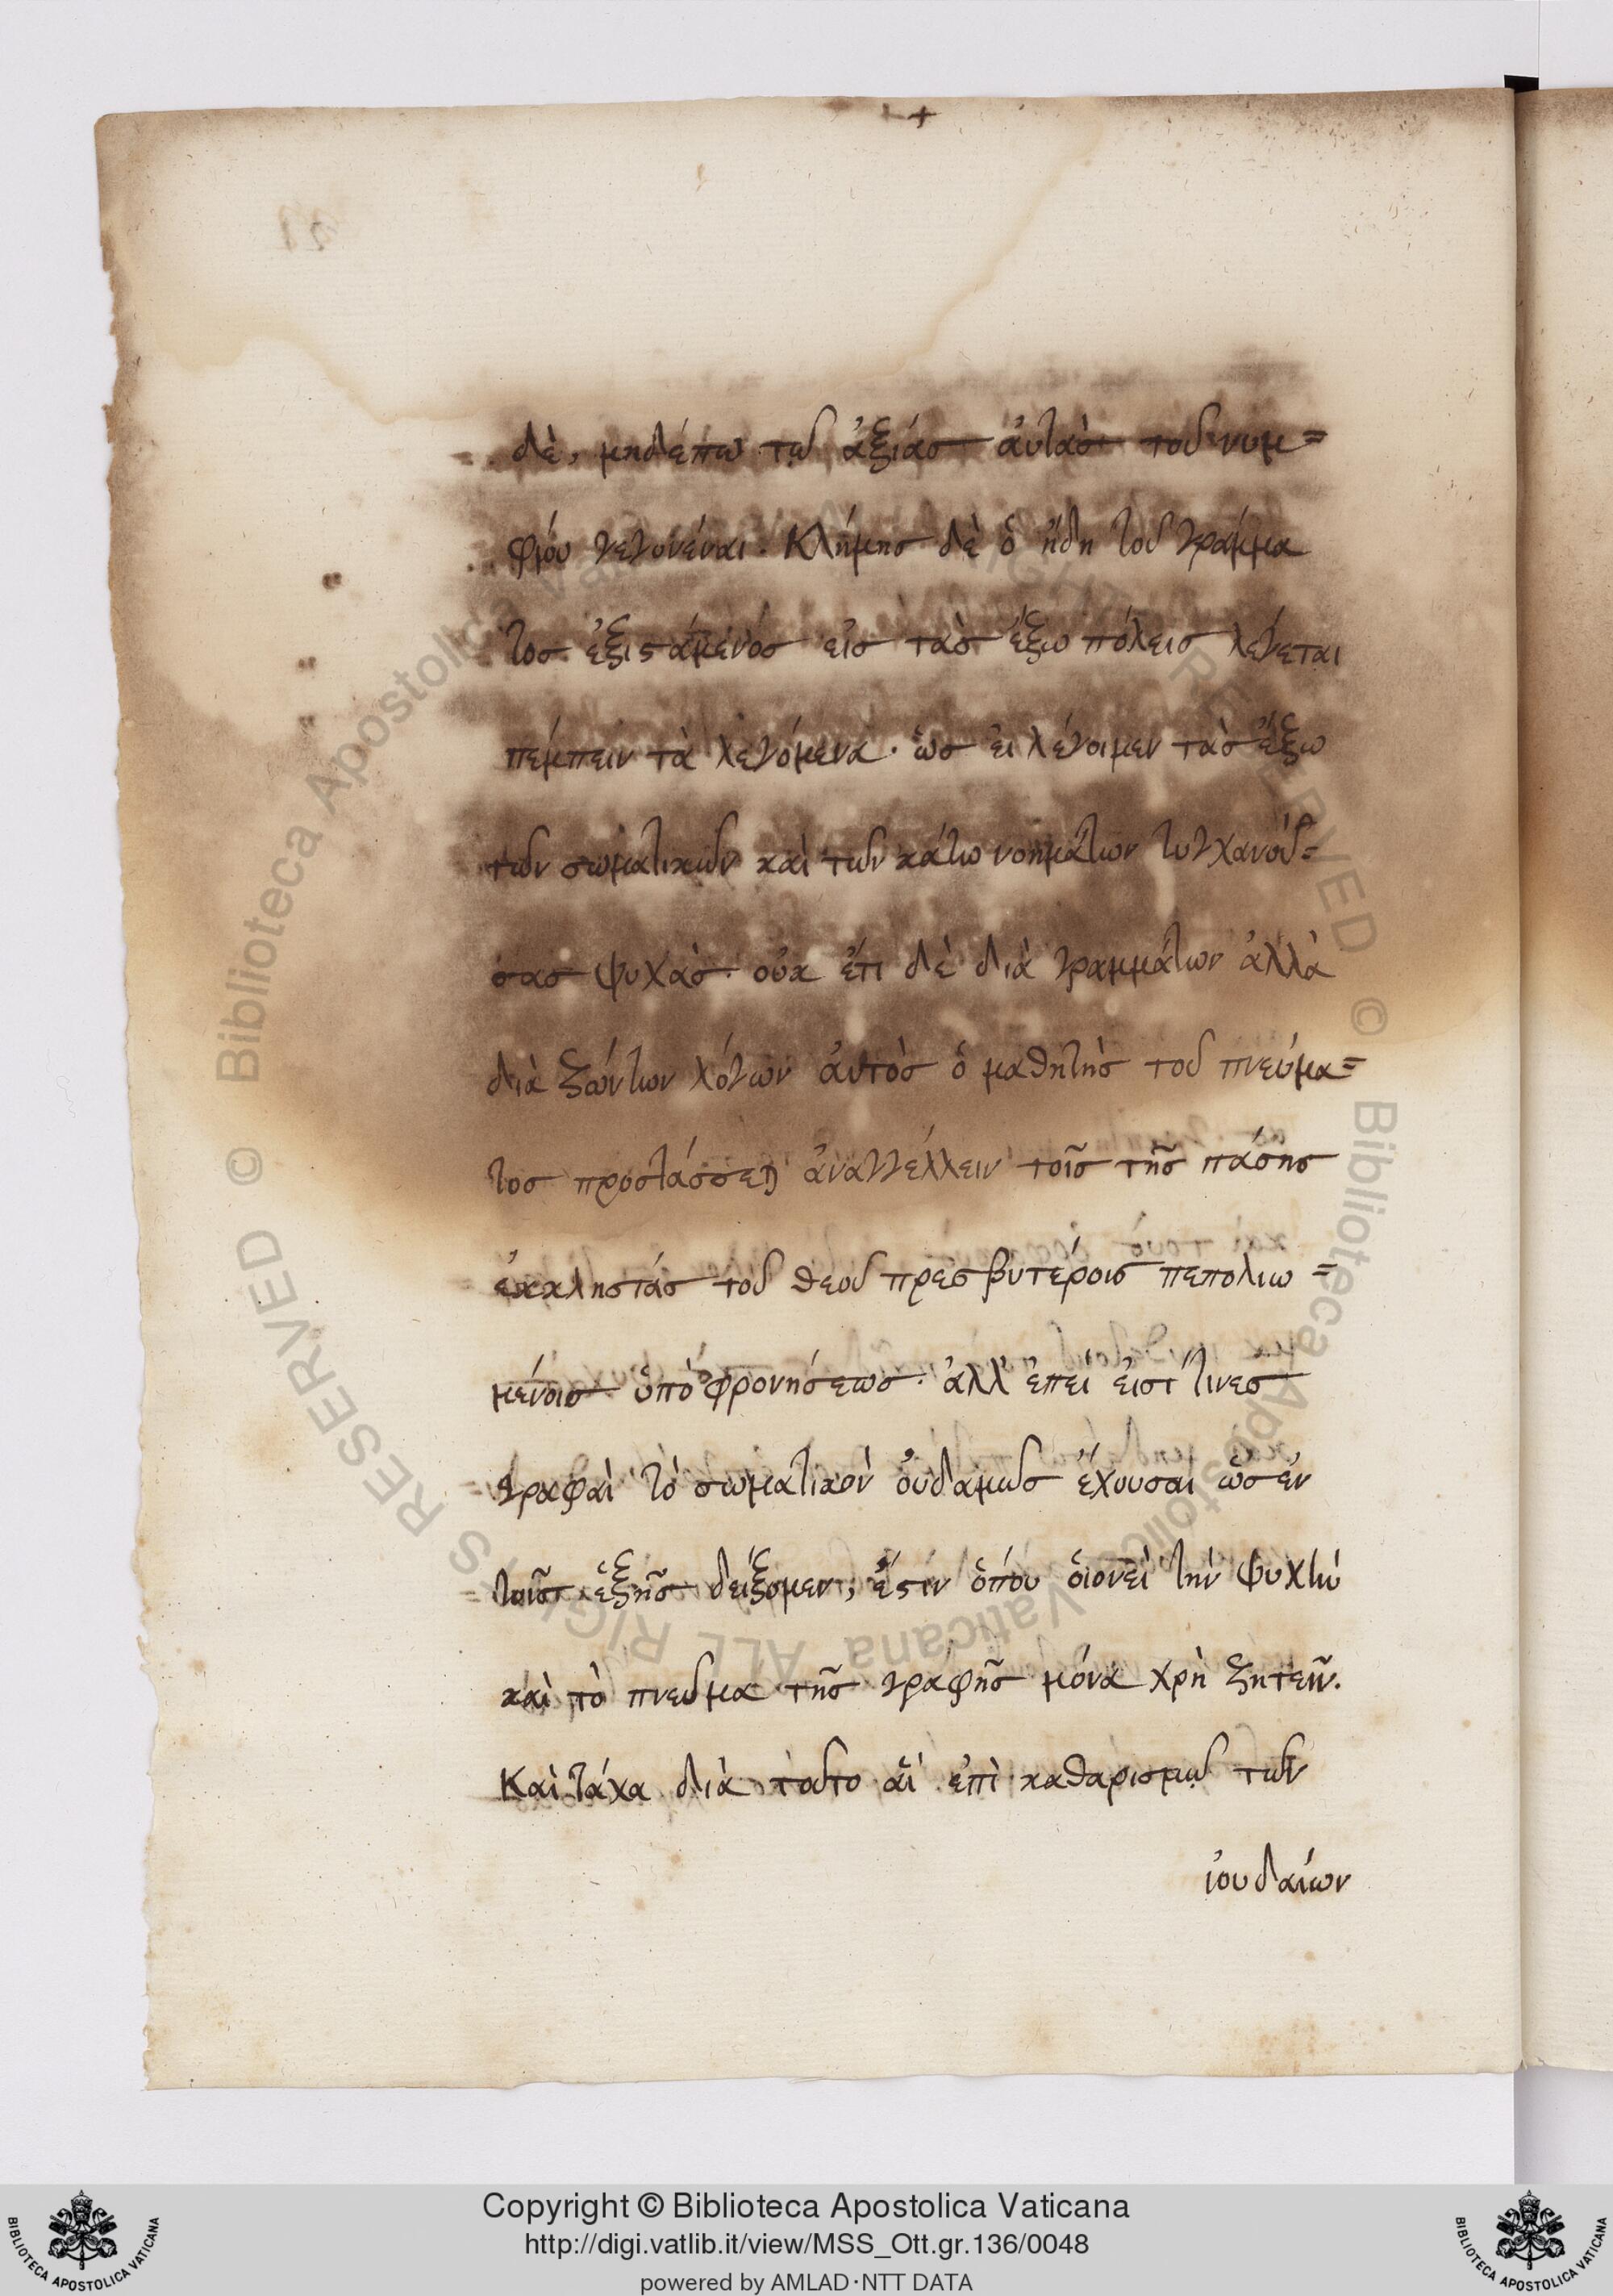 δὲ, μηδέπω τῷ ἀξιάσ ἀυτὰσ τοῦ νυμ=
φιόυ γεγονέναι. Κλήμησ δὲ ὁ ἤδη τοῦ γράμμα
τοσ ἐξιστάμενόσ εἰσ τὰσ ἔξω πόλεισ λέγεται
πέμπειν τὰ λεγόμενα. ὡσ ἐι λέγοιμεν τὰσ ἔξω
τῶν σωματικῶν καὶ τῶν κάτω νοημάτων τυγχανόυ=
σασ ψυχάσ. οὐκ ἔτι δὲ διὰ γραμμάτων ἀλλὰ
διὰ ζώντων λόγων ἀυτὸσ ὁ μαθητὴσ τοῦ πνεύμα=
τοσ προστάσσεται ἀναγγέλλειν τοῖσ τῆσ πάσησ
ἐκκλησίάσ τοῦ θεοῦ πρεσβυτέροισ πεπολιω=
μένοισ ὑπὸ φρονήσεωσ. ἀλλ' ἐπεὶ ἐισί τινεσ
γραφαὶ τὸ σωματικὸν ὀυδαμῶσ ἔχουσαι ὡσ ἐν
τοῖσ ἑξῆσ δείξομεν, ἔστιν ὁπόυ ὁιονεὶ τὴν ψυχὴν
καὶ τὸ πνεῦμα τῆσ γραφῆσ μόνα χρὴ ζητεῖν.
Καὶ τάχα διὰ τοῦτο ἅι ἐπὶ καθαρισμῷ τῶν
ἰουδαίων
Copyright © Biblioteca Apostolica Vaticana
http://digi.vatlib.it/view/MSS_Ott.gr.136/0048
powered by AMLAD·NTT DATA
BIBLIOTECA APOSTOLICA VATICANA
BIBLIOTECA APOSTOLICA VATICANA
© Biblioteca Apostolica Vaticana ALL RIGHTS RESERVED
© Biblioteca Apostolica Vaticana ALL RIGHTS RESERVED